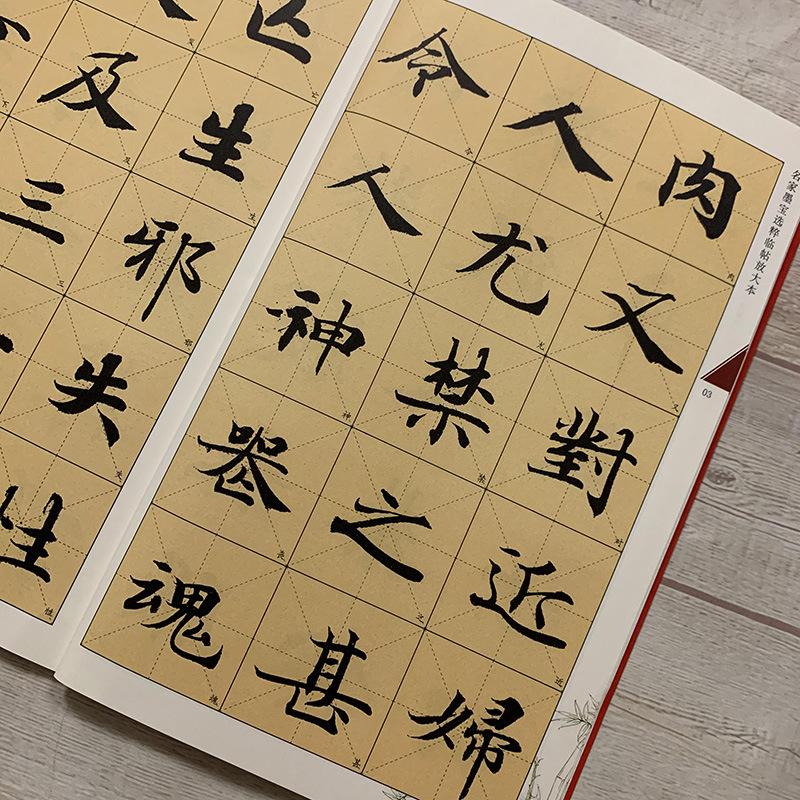 名家墨宝选粹临帖放大本
03
肉又對近婦
人尤禁之甚
令人神喪魂
亡生邪失性
及三